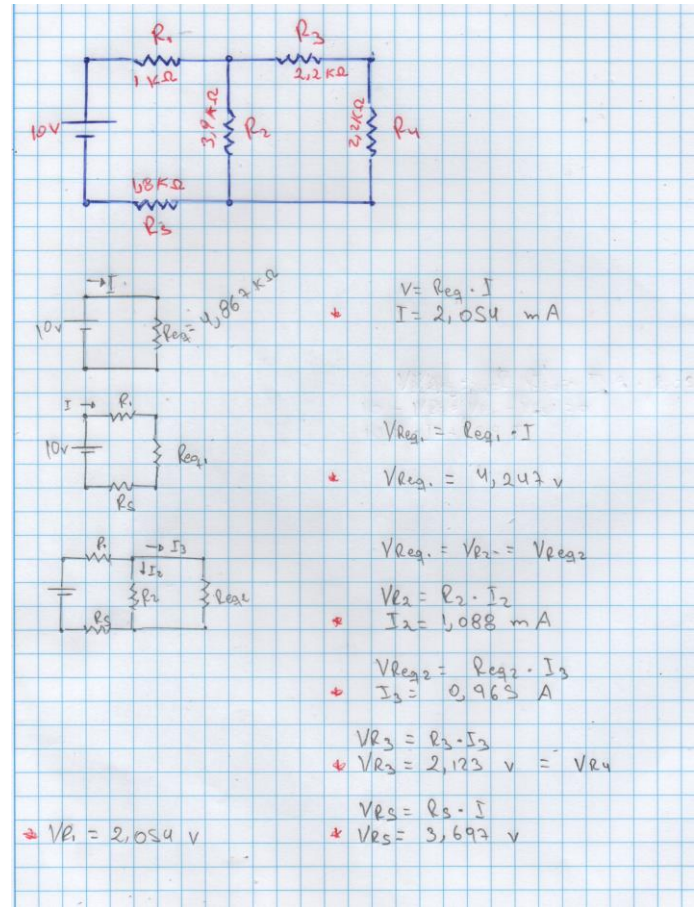 R1 R3
1 KΩ 2,2KΩ
10V 3,9KΩ R2 2,2KΩ R4
1,8KΩ
R5
→I
10V Req= 4,867 KΩ
V= Req · I
* I= 2,054 mA
I → R1
10V Req1
R5
VReq1 = Req1 · I
* VReq1 = 4,247 v
R1 → I3
↓I2
R2 Req2
R5
VReq1 = VR2 = VReq2
VR2 = R2 · I2
* I2= 1,088 mA
VReq2= Req2 · I3
* I3= 0,965 A
VR3 = R3·I3
* VR3= 2,123 v = VR4
VR5 = R5 · I
* VR1 = 2,054 v * VR5= 3,697 v